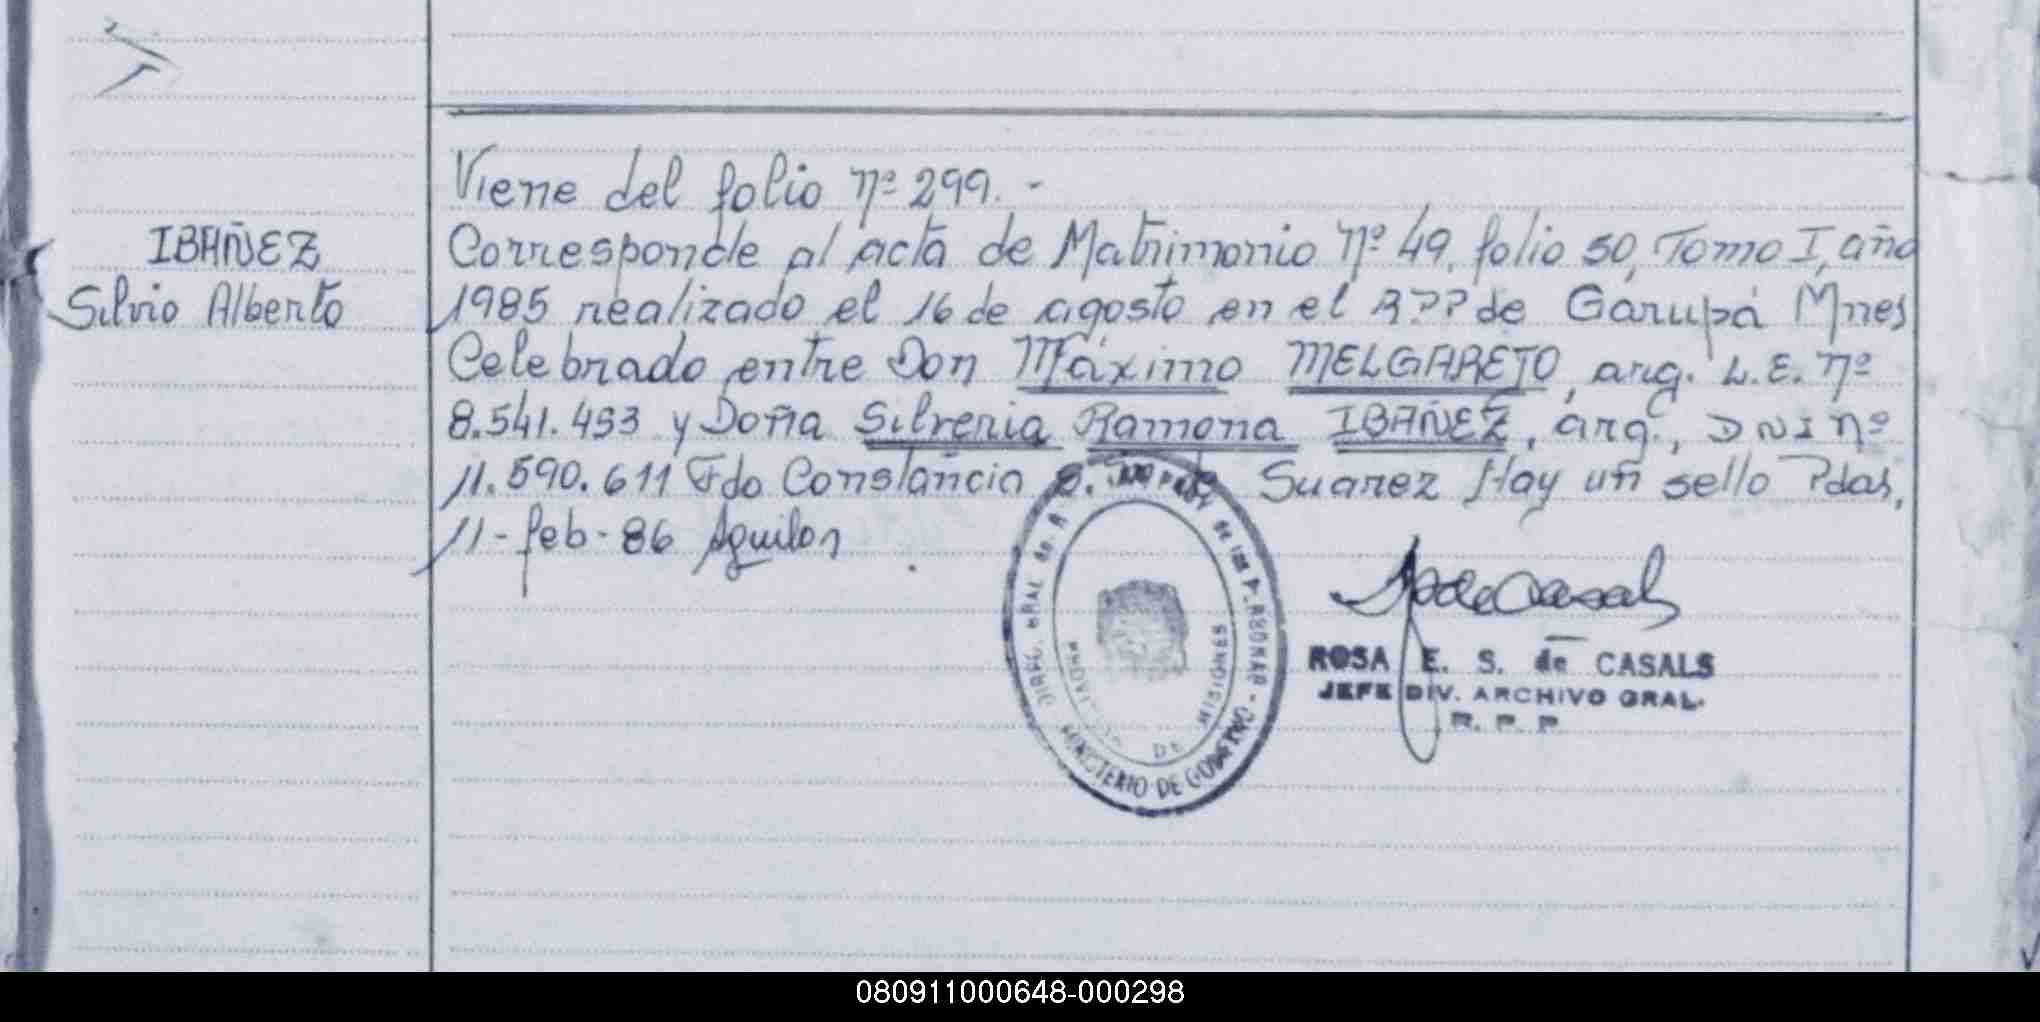 Viene del folio nº 299. -
IBAÑEZ
Silvio Alberto
Corresponde al acta de Matrimonio nº 49, folio 50, Tomo I, año
1985 realizado el 16 de agosto en el RPP de Garupá Mnes
Celebrado entre Don Máximo MELGAREJO, arg. L.E. nº
8.541.453 y Doña Silveria Ramona IBAÑEZ, arg., DNI nº
11.590.611 Fdo Constancia Suarez Hay un sello Pdas,
11-feb-86
ROSA E. S. de CASALS
JEFE DIV. ARCHIVO GRAL.
R. P. P.
MINISTERIO DE GOBIERNO
DE MISIONES
080911000648-000298